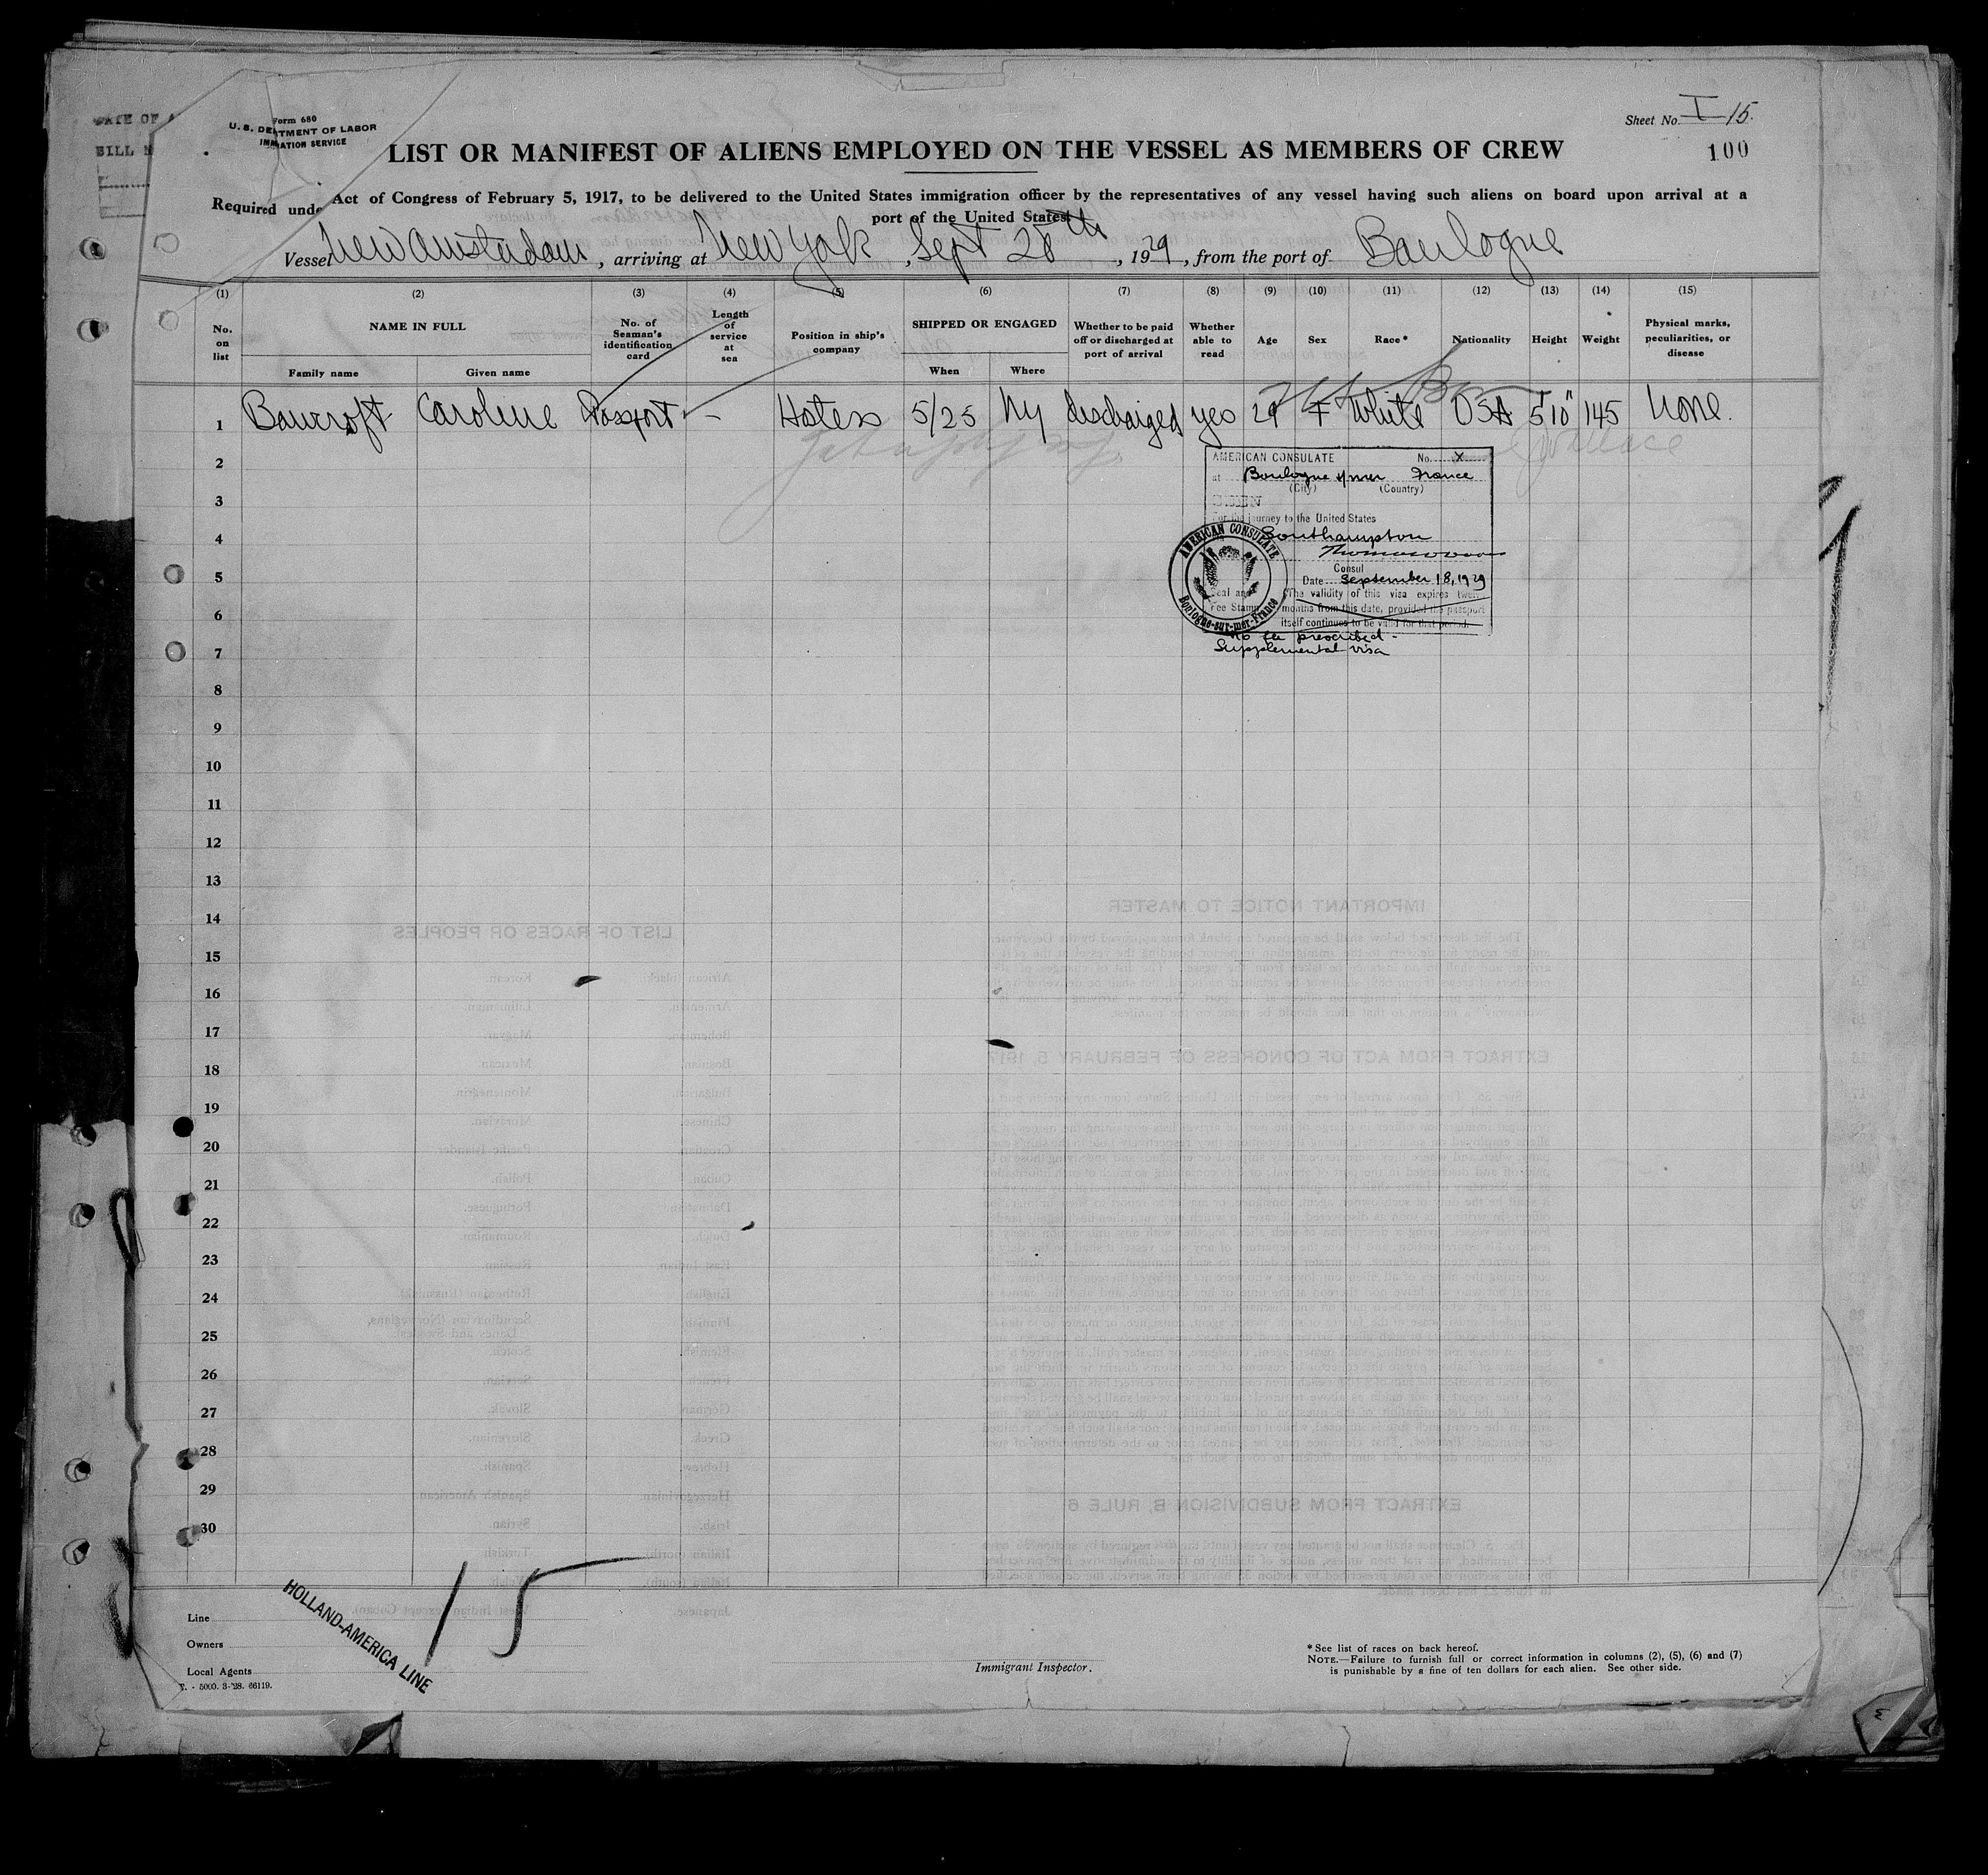 Form 680
U. S. DE TMENT OF LABOR
IMM ATION SERVICE
Sheet No. I-15.
100
LIST OR MANIFEST OF ALIENS EMPLOYED ON THE VESSEL AS MEMBERS OF CREW
Required unde Act of Congress of February 5, 1917, to be delivered to the United States immigration officer by the representatives of any vessel having such aliens on board upon arrival at a
port of the United States
Vessel New Amsterdam, arriving at New York, Sept 28th, 1929, from the port of Boulogne
(1) (2) (3) (4) (5) (6) (7) (8) (9) (10) (11) (12) (13) (14) (15)
No. on list
NAME IN FULL
Family name
Given name
No. of Seaman's identification card
Length of service at sea
Position in ship's company
SHIPPED OR ENGAGED
When
Where
Whether to be paid off or discharged at port of arrival
Whether able to read
Age
Sex
Race*
Nationality
Height
Weight
Physical marks, peculiarities, or disease
1 Bancroft Caroline Passport - Hotess 5/25 Ny discharged yes 29 F White USA 5'10" 145 None.
2
3
4
5
6
7
8
9
10
11
12
13
14
15
16
17
18
19
20
21
22
23
24
25
26
27
28
29
30
AMERICAN CONSULATE No. X
at Boulogne s/mer France
(City) (Country)
SEEN
For the journey to the United States
Southampton
Consul
Date September 18, 1929
Seal and
Fee Stamp
(The validity of this visa expires twelve
months from this date, provided the passport
itself continues to be valid for that period.
AMERICAN CONSULATE
Boulogne-sur-mer-France
No fee prescribed -
Supplemental visa
15
Line
Owners
Local Agents
HOLLAND-AMERICA LINE
T. - 5000. 3-'28. 66119.
Immigrant Inspector.
* See list of races on back hereof.
NOTE.—Failure to furnish full or correct information in columns (2), (5), (6) and (7)
is punishable by a fine of ten dollars for each alien. See other side.